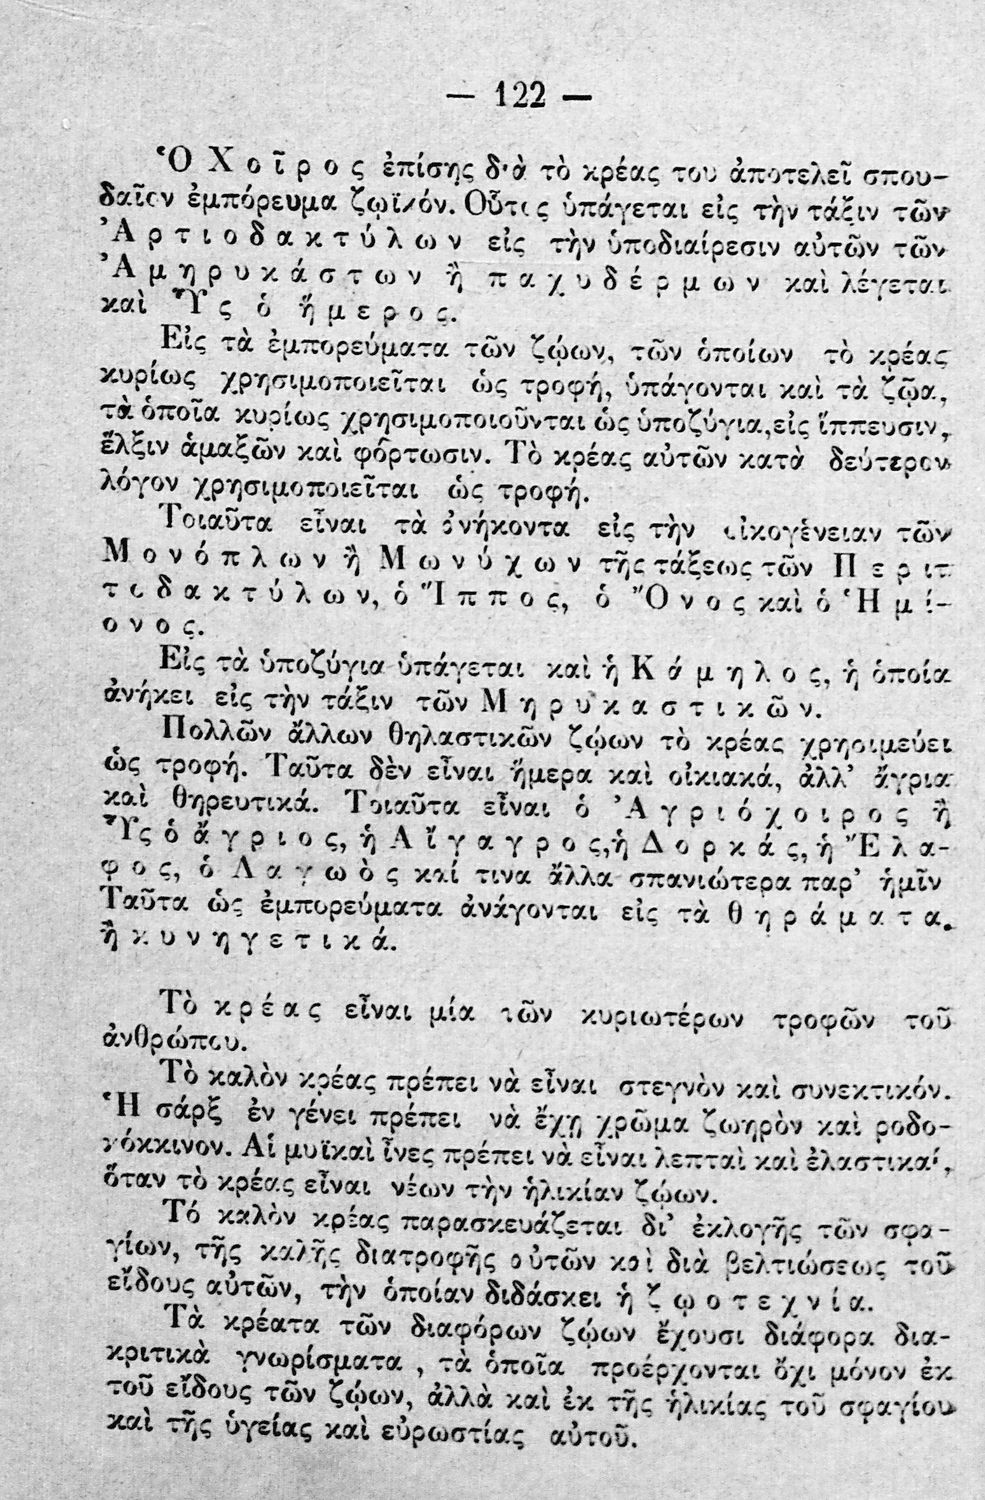 — 122 —
Ὁ Χοῖρος ἐπίσης διὰ τὸ κρέας του ἀποτελεῖ σπου-
δαῖον ἐμπόρευμα ζωϊκόν. Οὗτος ὑπάγεται εἰς τὴν τάξιν τῶν
Ἀρτιοδακτύλων εἰς τὴν ὑποδιαίρεσιν αὐτῶν τῶν
Ἀμηρυκάστων ἢ παχυδέρμων καὶ λέγεται
καὶ Ὗς ὁ ἥμερος.
Εἰς τὰ ἐμπορεύματα τῶν ζῴων, τῶν ὁποίων τὸ κρέας
κυρίως χρησιμοποιεῖται ὡς τροφή, ὑπάγονται καὶ τὰ ζῷα,
τὰ ὁποῖα κυρίως χρησιμοποιοῦνται ὡς ὑποζύγια, εἰς ἵππευσιν,
ἕλξιν ἁμαξῶν καὶ φόρτωσιν. Τὸ κρέας αὐτῶν κατὰ δεύτερον
λόγον χρησιμοποιεῖται ὡς τροφή.
Τοιαῦτα εἶναι τὰ ἀνήκοντα εἰς τὴν οἰκογένειαν τῶν
Μονόπλων ἢ Μωνύχων τῆς τάξεως τῶν Περιτ
τοδακτύλων, ὁ Ἵππος, ὁ Ὄνος καὶ ὁ Ἡμί-
ονος.
Εἰς τὰ ὑποζύγια ὑπάγεται καὶ ἡ Κάμηλος, ἡ ὁποία
ἀνήκει εἰς τὴν τάξιν τῶν Μηρυκαστικῶν.
Πολλῶν ἄλλων θηλαστικῶν ζῴων τὸ κρέας χρησιμεύει
ὡς τροφή. Ταῦτα δὲν εἶναι ἥμερα καὶ οἰκιακά, ἀλλ' ἄγρια
καὶ θηρευτικά. Τοιαῦτα εἶναι ὁ Ἀγριόχοιρος ἢ
Ὗς ὁ ἄγριος, ἡ Αἴγαγρος, ἡ Δορκάς, ἡ Ἔλα-
φος, ὁ Λαγωὸς καί τινα ἄλλα σπανιώτερα παρ' ἡμῖν
Ταῦτα ὡς ἐμπορεύματα ἀνάγονται εἰς τὰ θηράματα.
ἢ κυνηγετικά.
Τὸ κρέας εἶναι μία τῶν κυριωτέρων τροφῶν τοῦ
ἀνθρώπου.
Τὸ καλὸν κρέας πρέπει νὰ εἶναι στεγνὸν καὶ συνεκτικόν.
Ἡ σάρξ ἐν γένει πρέπει νὰ ἔχῃ χρῶμα ζωηρὸν καὶ ροδο-
κόκκινον. Αἱ μυϊκαὶ ἶνες πρέπει νὰ εἶναι λεπταὶ καὶ ἐλαστικαί,
ὅταν τὸ κρέας εἶναι νέων τὴν ἡλικίαν ζῴων.
Τό καλὸν κρέας παρασκευάζεται δι' ἐκλογῆς τῶν σφα-
γίων, τῆς καλῆς διατροφῆς αὐτῶν καὶ διὰ βελτιώσεως τοῦ
εἴδους αὐτῶν, τὴν ὁποίαν διδάσκει ἡ ζῳοτεχνία.
Τὰ κρέατα τῶν διαφόρων ζῴων ἔχουσι διάφορα δια-
κριτικὰ γνωρίσματα , τὰ ὁποῖα προέρχονται ὄχι μόνον ἐκ
τοῦ εἴδους τῶν ζῴων, ἀλλὰ καὶ ἐκ τῆς ἡλικίας τοῦ σφαγίου
καὶ τῆς ὑγείας καὶ εὐρωστίας αὐτοῦ.